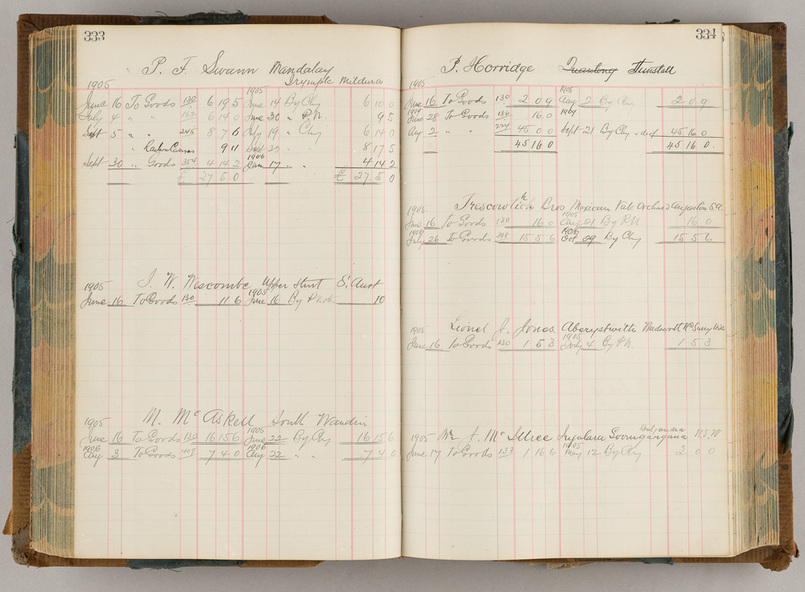 333
P. F. Swann Mandalay
Irymple Mildura
1905 1905
June 16 To Goods 130 6 19 5 June 14 By Chq 6 10 0
July 4 " " 6 14 0 June 20 " P.N. 9 5
Sept 5 " " 245 8 7 6 July 19 " Chq 6 14 0
" 9 11 Sept 8 17 5
Sept 30 " Goods 354 4 14 2 1906 Jan 17 " " 4 14 2
£ 27 5 0 £ 27 5 0
J. W. Wescombe Upper Sturt S. Aust
1905 1905
June 16 To Goods 130 11 6 June 16 By 10
M. McAskell South Wandin
1905 1905
June 16 To Goods 130 16 15 6 June 22 By Chq 16 15 6
1906 1906
Aug 3 To Goods 7 4 0 Aug 22 " " 7 4 0
334
P. Horridge Tunstall
1905 1905
June 16 To Goods 130 2 0 9 Aug 2 By Chq 2 0 9
June 28 To Goods 16 0
Aug 2 " " 45 0 0 Sept 21 By Chq 45 16 0
45 16 0 45 16 0
Trescowthick Bros Mexican Vale Orchard Angaston S.A.
1905 1905
June 16 To Goods 130 16 0 Aug 21 By P.N. 16 0
1906 1906
July 26 To Goods 15 5 6 Oct 29 By Chq 15 5 6
Lionel J. Jones Aberystwith
1905 1905
June 16 To Goods 130 1 5 3 July 4 By P.N. 1 5 3
1905 Mr A. N.S.W
1905
June 17 To Goods 133 1 16 6 May 12 By Chq 2 0 0